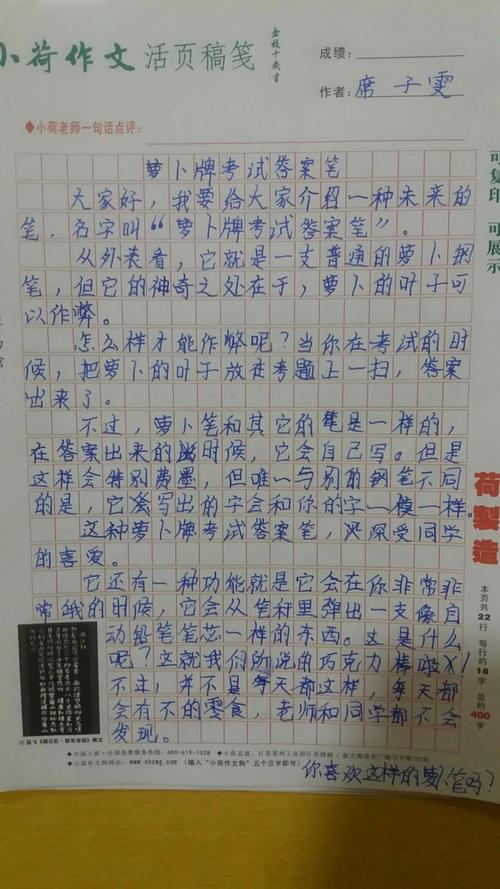 小荷作文 活页稿笺
成绩：
作者：席子雯
◆小荷老师一句话点评：
可复印 可展示
萝卜牌考试答案笔
大家好，我要给大家介绍一种未来的
笔，名字叫“萝卜牌考试答案笔”。
从外表看，它就是一支普通的萝卜钢
笔，但它的神奇之处在于，萝卜的叶子可
以作弊。
怎么样才能作弊呢？当你在考试的时
候，把萝卜的叶子放在考题上一扫，答案
出来了。
不过，萝卜笔和其它的笔是一样的，
在答案出来的时候，它会自己写。但是
这样会特别费墨，但唯一与别的钢笔不同
的是，它会写出的字会和你的字一模一样。
这种萝卜牌考试答案笔，深受同学
的喜爱。
它还有一种功能就是它会在你非常非
常饿的时候，它会从笔秆里弹出一支像自
动铅笔笔芯一样的东西。这是什么
呢？这就我们所说的巧克力棒啦！
不过，并不是每天都这样，每天都
会有不的零食，老师和同学都不会
发现。
你喜欢这样的萝卜笔吗？
荷製造
本页共22行 每行约18字 总约400字
◆中国小荷·全国免费服务热线：400-619-1028
◆小荷作文网站：www.xhzwg.com （输入“小荷作文狗”五个汉字即可）